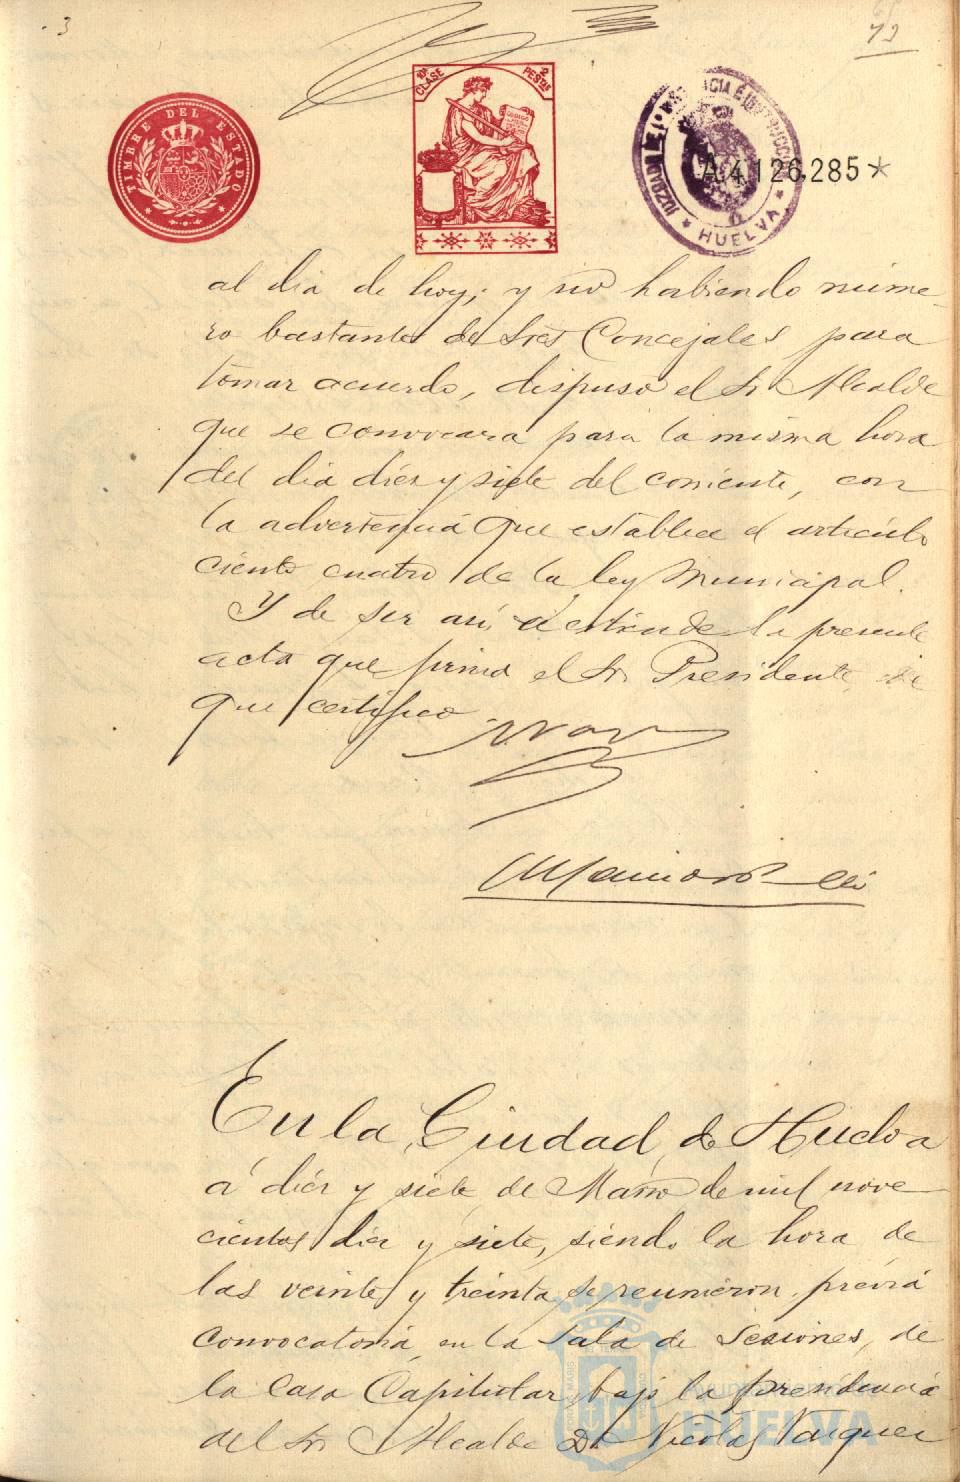 3
72
TIMBRE DEL ESTADO
10ª CLASE
2 PESETAS
JUZGADO DE 1ª INSTANCIA É INSTRUCCION
HUELVA
A.4.126.285*
al dia de hoy; y no habiendo núme-
ro bastante de Sres Concejales para
tomar acuerdo, dispuso el Sr Alcalde
que se convocara para la misma hora
del dia diez y siete del corriente, con
la advertencia que establece el artículo
ciento cuatro de la ley Municipal.
Y de ser así, se extiende la presente
acta que firma el Sr Presidente, de
que certifico
En la Ciudad de Huelva
á diez y siete de Marzo de mil nove-
cientos diez y siete, siendo la hora de
las veinte y treinta se reunieron, prévia
convocatoria, en la Sala de Sesiones, de
la Casa Capitular, bajo la presidencia
del Sr Alcalde Dn Nicolas Vazquez
Ayuntamiento de
HUELVA